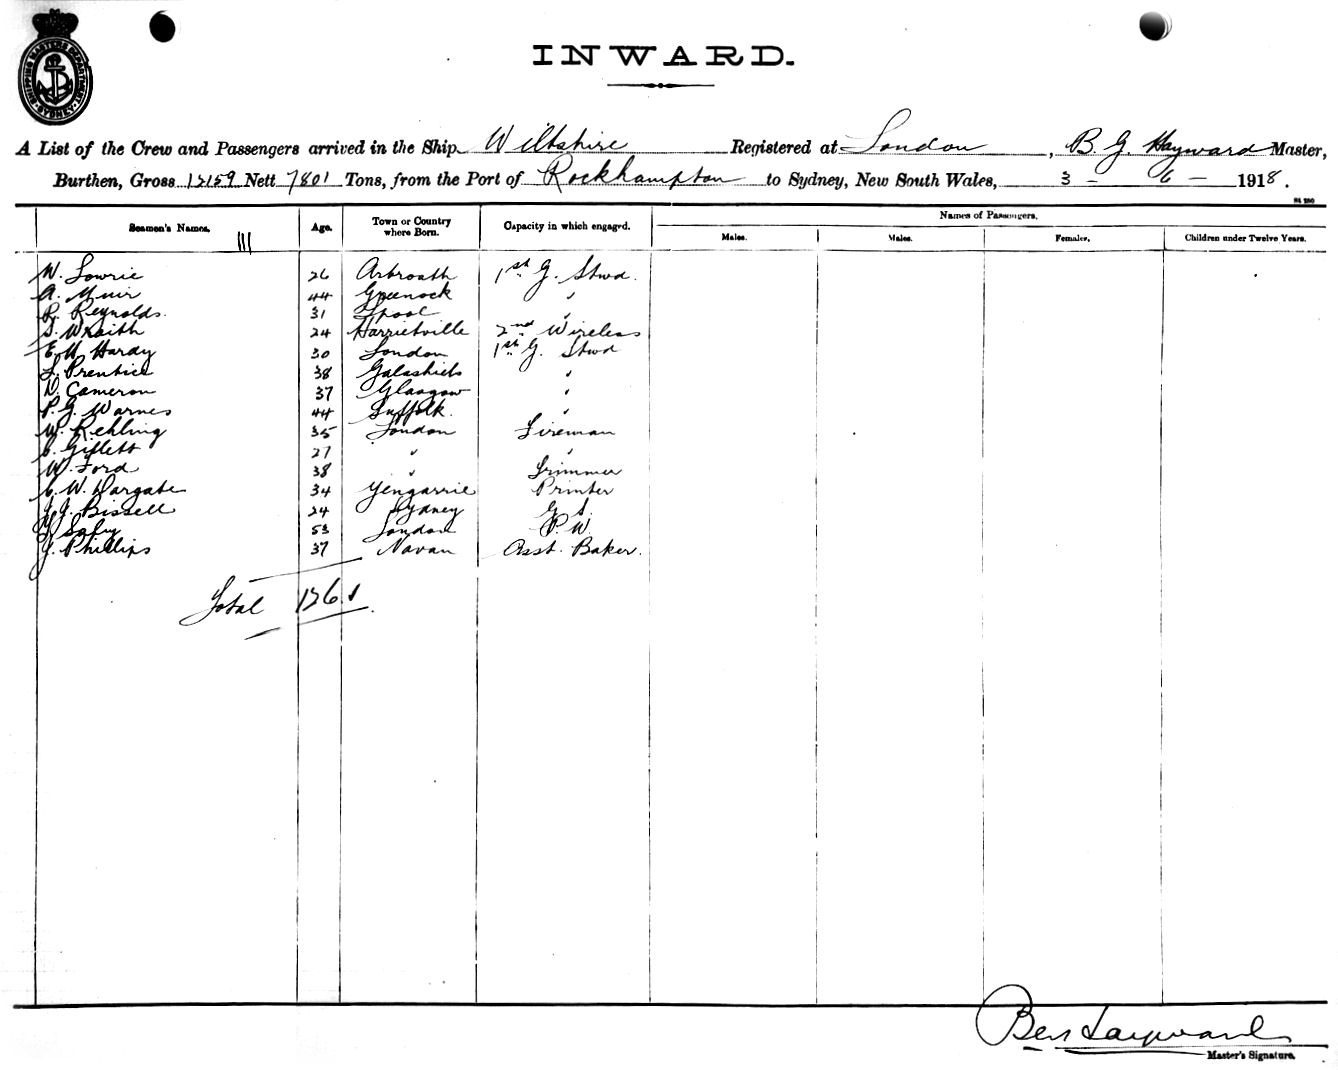 SHIPPING MASTERS DEPARTMENT SYDNEY
INWARD.
A List of the Crew and Passengers arrived in the Ship Wiltshire Registered at London, B. G. Hayward Master,
Burthen, Gross 12159 Nett 7801 Tons, from the Port of Rockhampton to Sydney, New South Wales, 3 - 6 - 1918.
Names of Passengers.
Seamen's Names. Age. Town or Country where Born. Capacity in which engaged. Males. Males. Females. Children under Twelve Years.
W. Lowrie 26 Arbroath 1st G. Stwd.
A. Muir 44 Greenock "
R. Reynolds. 31 L'pool "
S. Wraith 24 Harrietville 2nd Wireless
E. W. Hardy 30 London 1st G. Stwd
L. Prentice 38 Galashiels "
D. Cameron 37 Glasgow "
P. G. Warnes 44 Suffolk. "
W. Rehling 35 London Fireman
C. Gillett 27 " "
W. Ford 38 " Trimmer
C. W. Dargate 34 Yengarrie Printer
J. J. Bissell 24 Sydney G. S.
53 London P. W.
J. Phillips 37 Navan Asst. Baker.
Total 126.
Ben Hayward
Master's Signature.